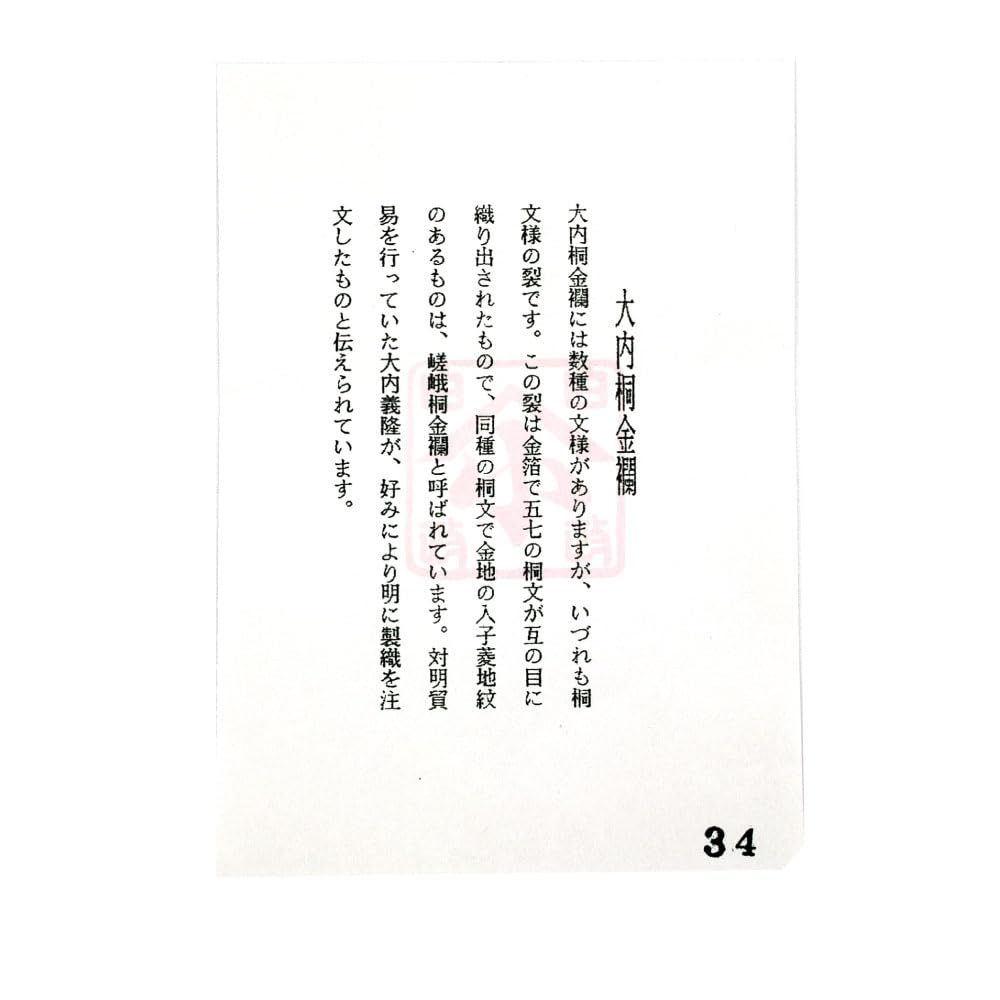 大内桐金襴
大内桐金襴には数種の文様がありますが、いづれも桐
文様の裂です。この裂は金箔で五七の桐文が互の目に
織り出されたもので、同種の桐文で金地の入子菱地紋
のあるものは、嵯峨桐金襴と呼ばれています。対明貿
易を行っていた大内義隆が、好みにより明に製織を注
文したものと伝えられています。
34